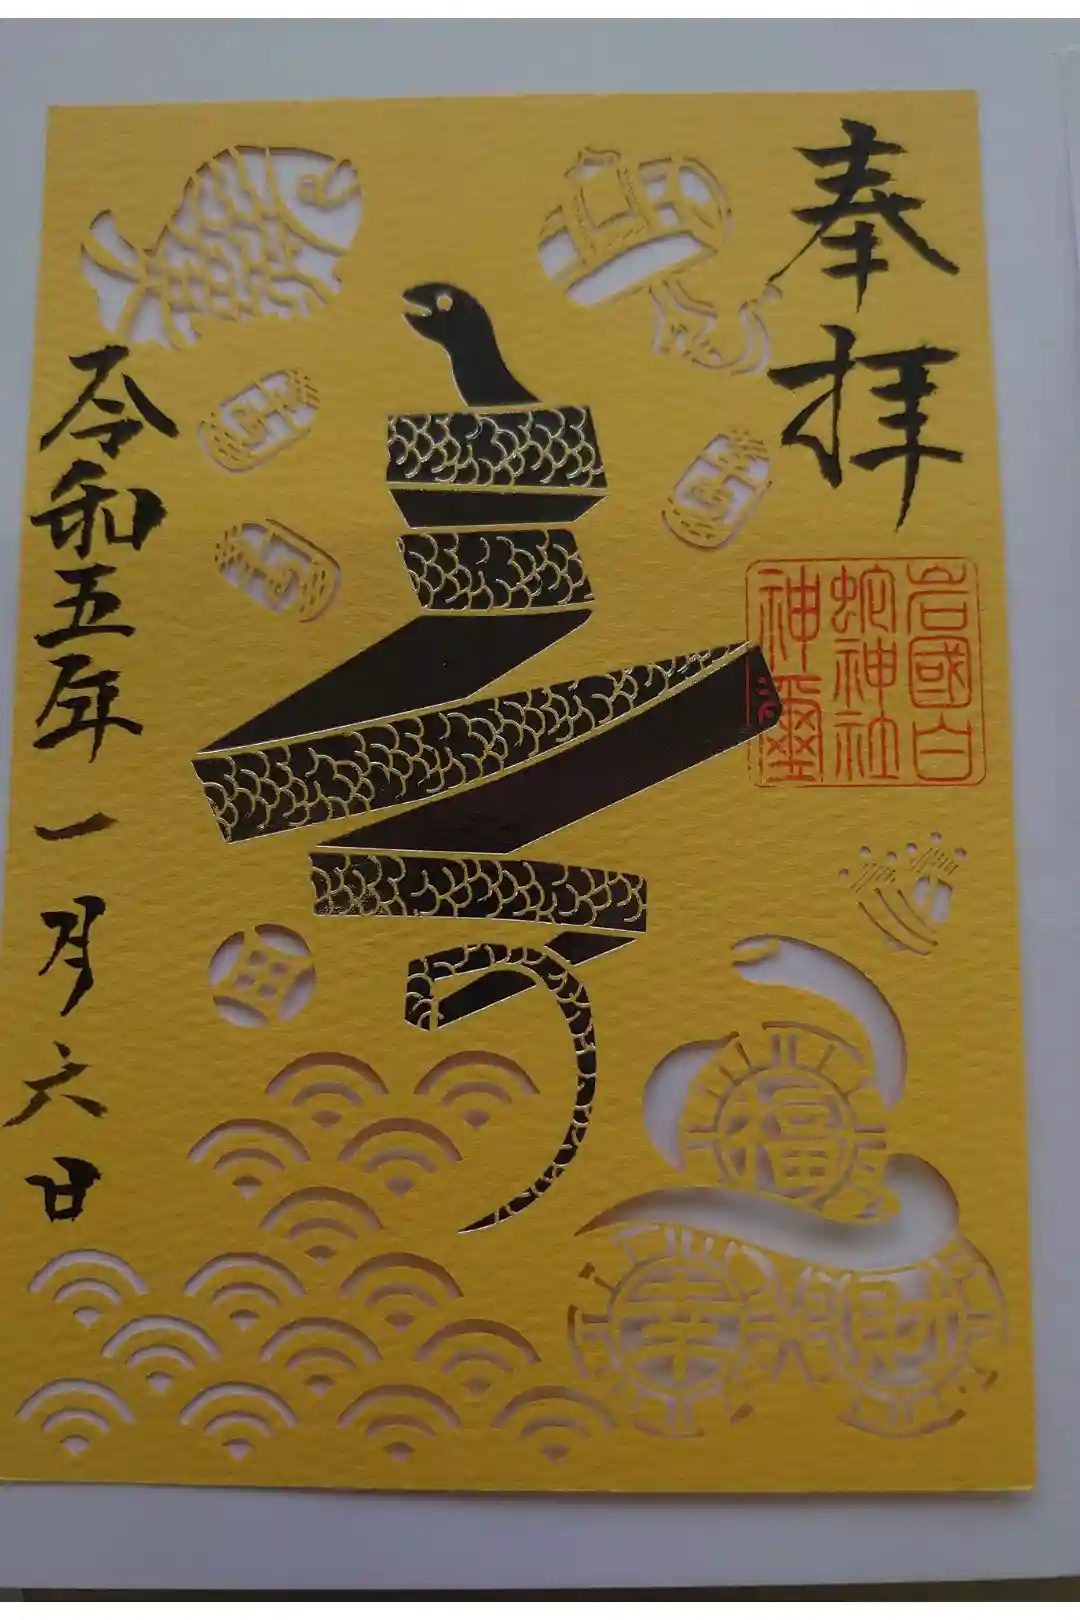 奉拝
岩國白
蛇神社
神璽
令和五年一月六日
福
幸
財